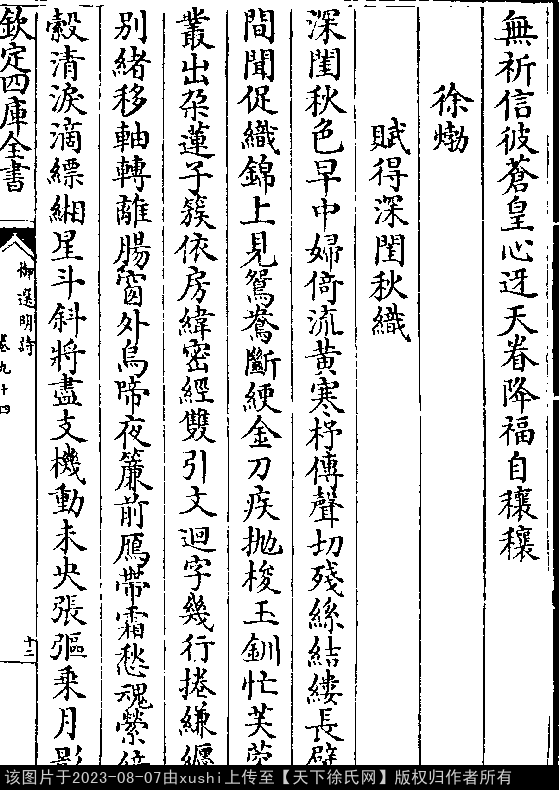 無祈信彼蒼皇心迓天眷降福自穰穰
徐𤊹
賦得深閨秋織
深閨秋色早中婦倚流黄寒杼傳聲切殘絲結縷長
間聞促織錦上見鴛鴦斷綆金刀疾抛梭玉釧忙芙
叢出朶蓮子簇依房緯密經雙引文迴字幾行捲縑
别緒移軸轉離腸窗外烏啼夜簾前鴈帶霜愁魂縈
縠清淚滴縹緗星斗斜將盡支機動未央張弫乗月影
欽定四庫全書
御選明詩
卷九十四
十二
该图片于2023-08-07由xushi上传至【天下徐氏网】版权归作者所有